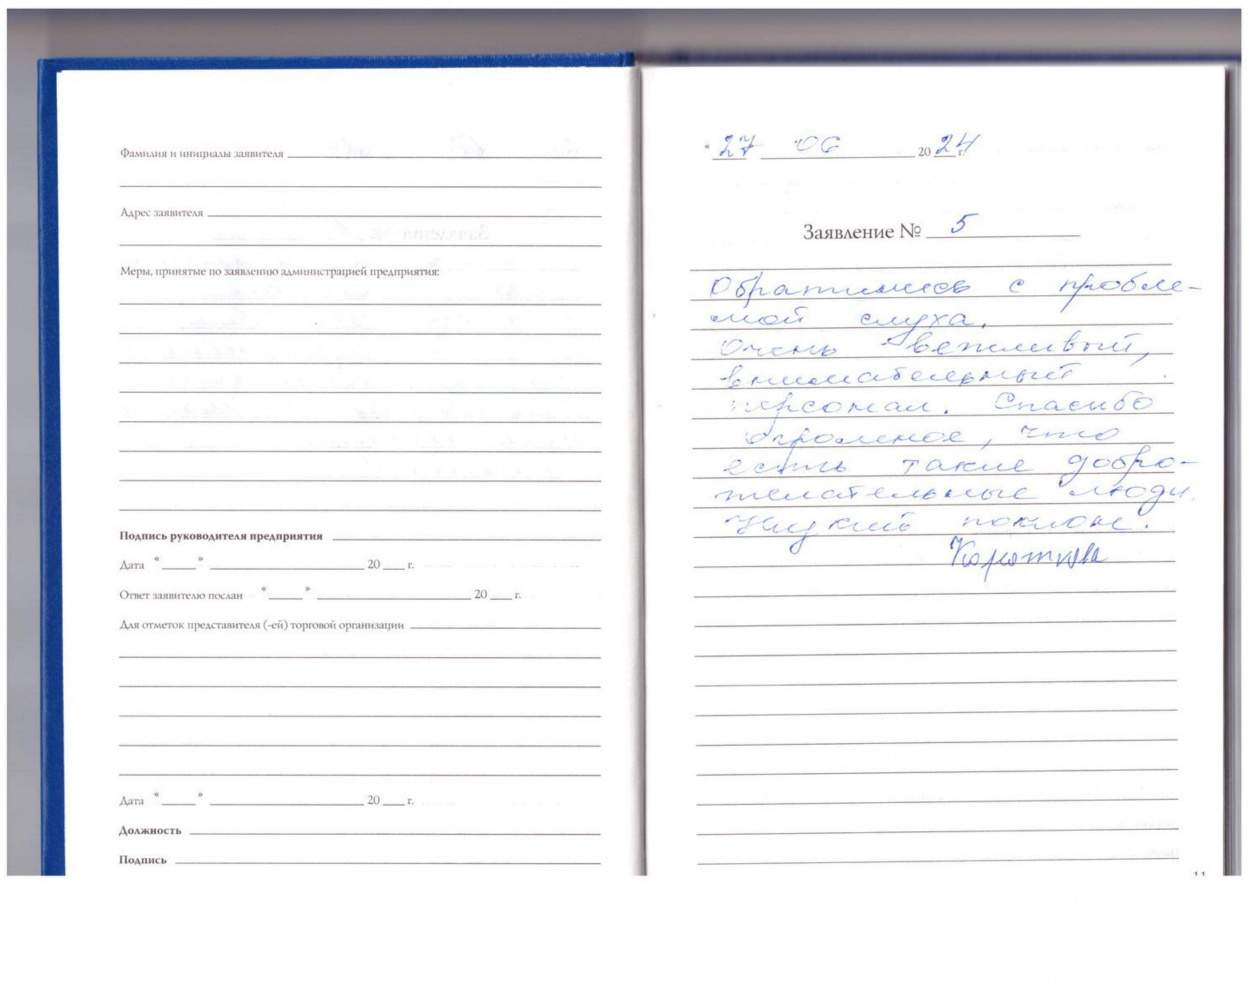 Фамилия и инициалы заявителя
Адрес заявителя
Меры, принятые по заявлению администрацией предприятия:
Подпись руководителя предприятия
Дата " " 20 г.
Ответ заявителю послан " " 20 г.
Для отметок представителя (-ей) торговой организации
Дата " " 20 г.
Должность
Подпись
" 27 06 2024 г.
Заявление № 5
Обратились с пробле-
мой слуха.
Очень вежливый,
внимательный
персонал. Спасибо
огромное, что
есть такие добро-
желательные люди.
Низкий поклон.
11